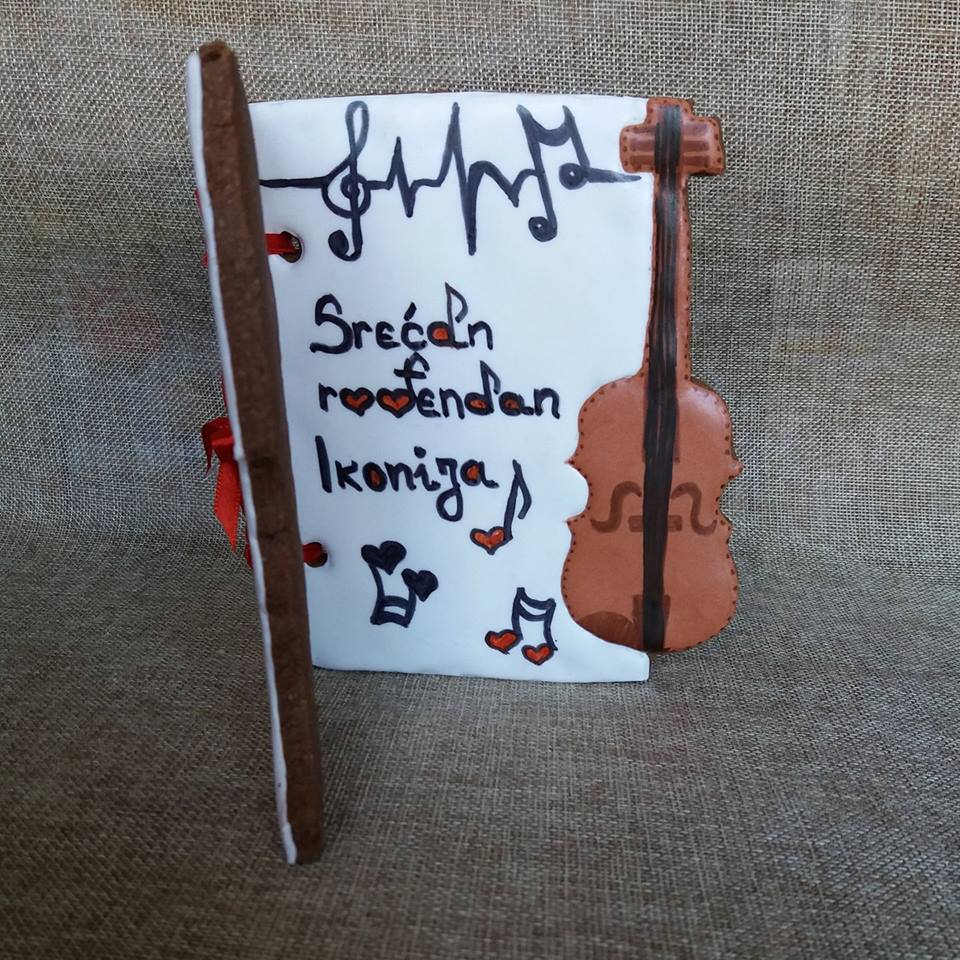 Srećan
rođendan
Ikonija